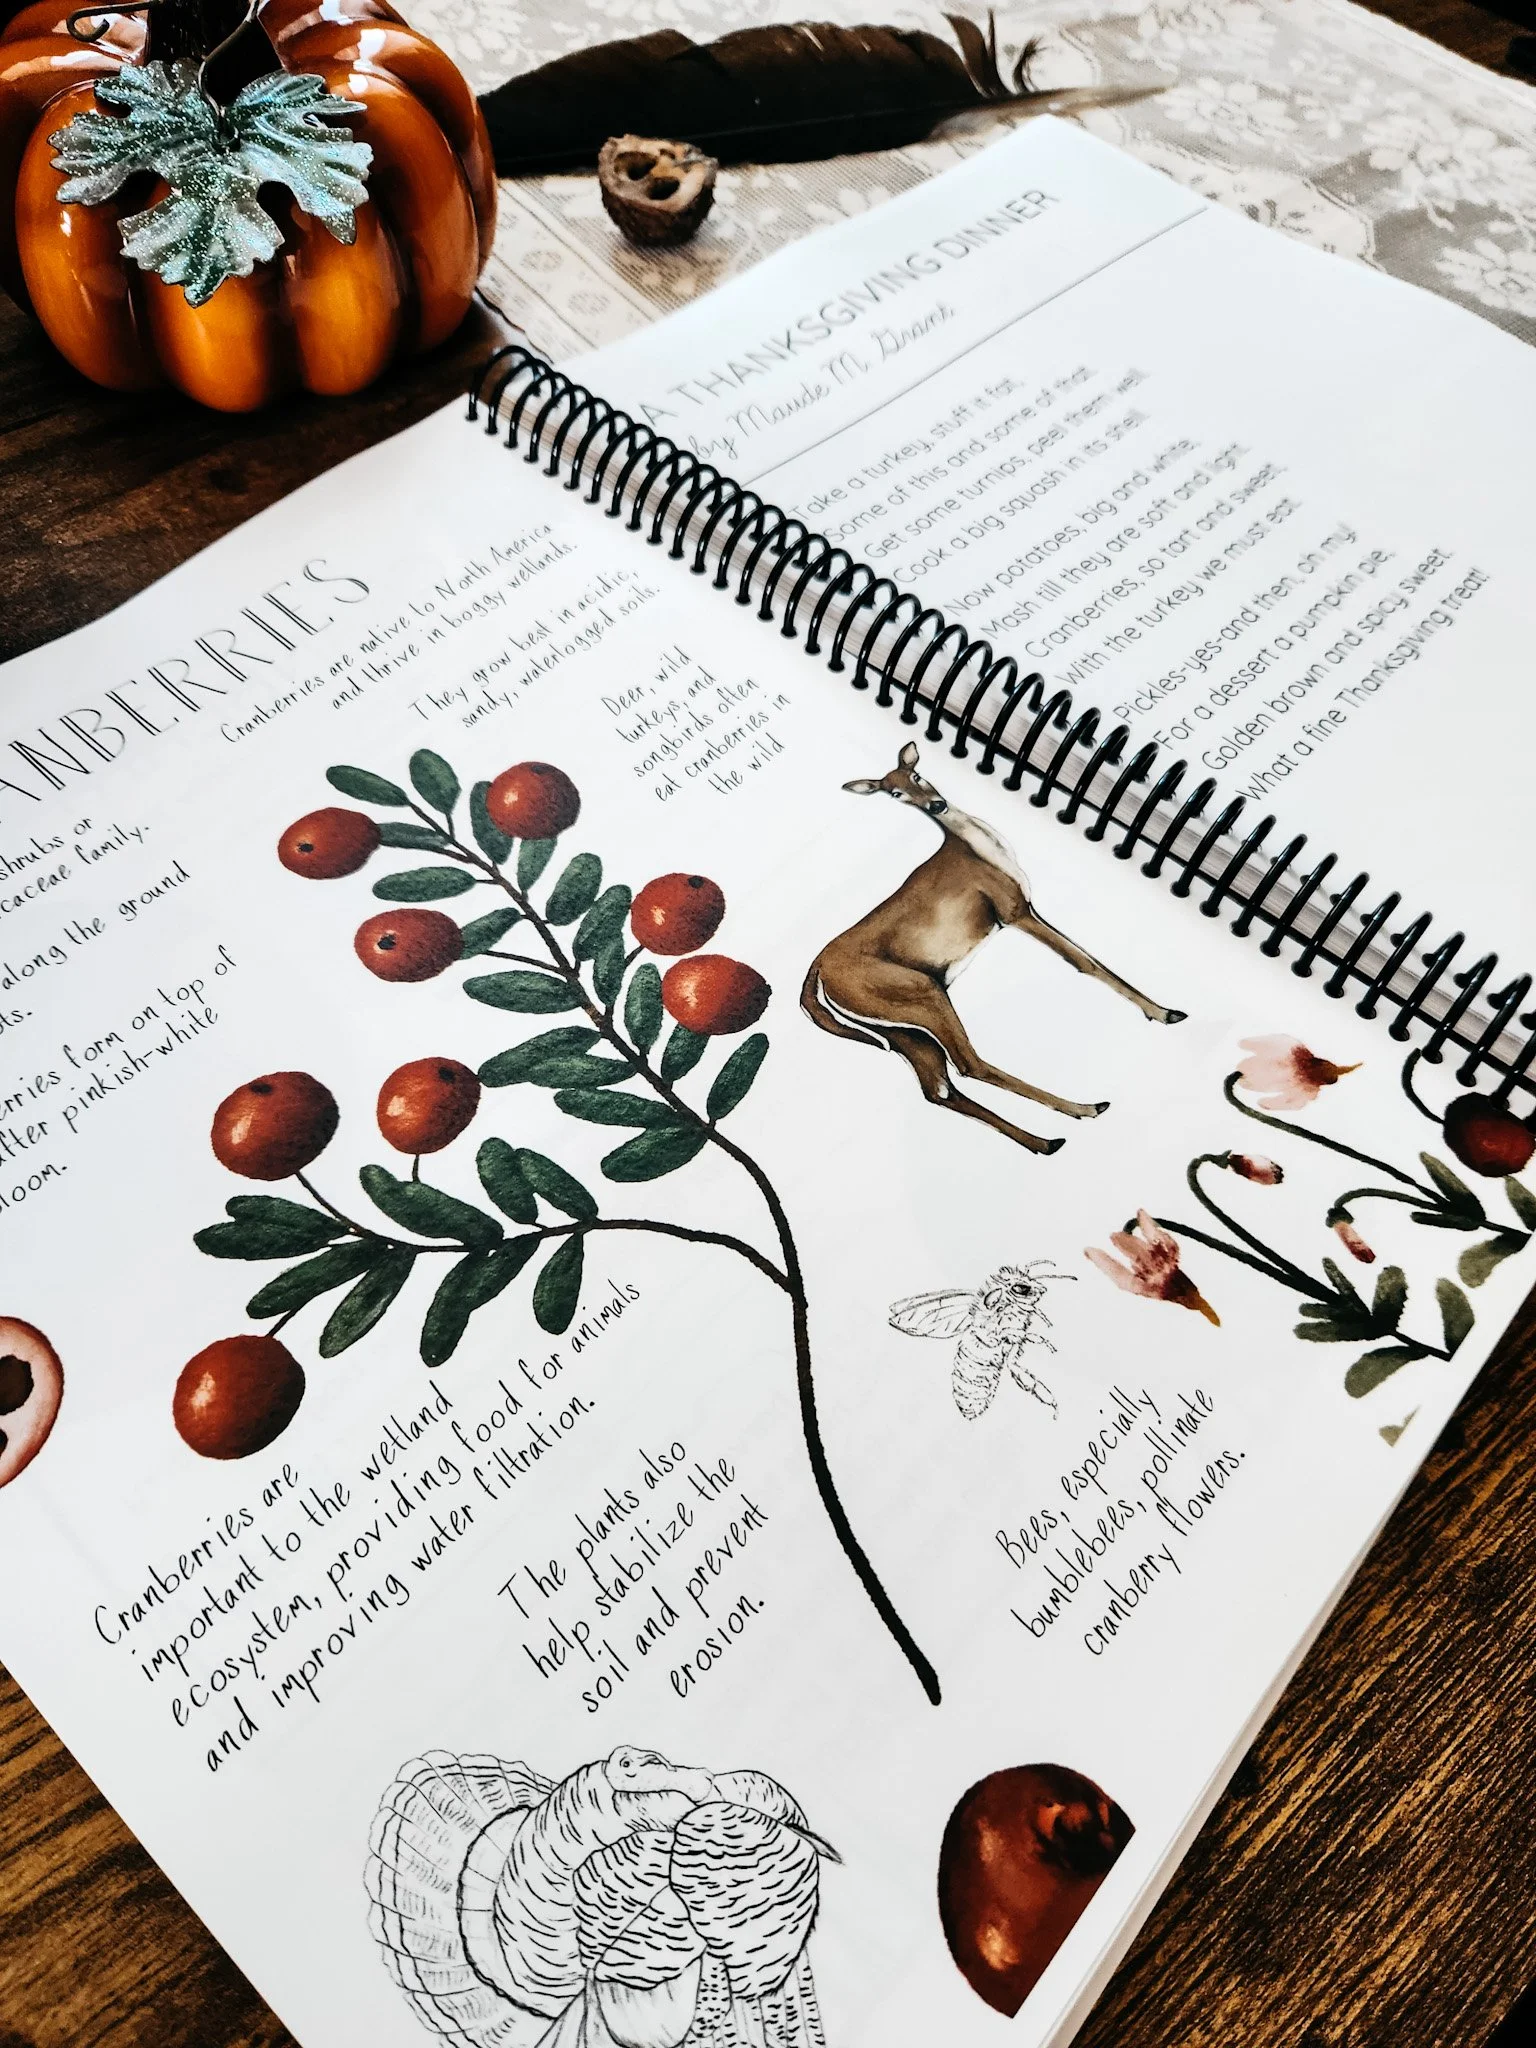 ANBERRIES
Cranberries are native to North America
and thrive in boggy wetlands.
They grow best in acidic,
sandy, waterlogged soils.
Deer, wild
turkeys, and
songbirds often
eat cranberries in
the wild
shrubs or
caceae family.
along the ground
ts.
erries form on top of
after pinkish-white
loom.
Cranberries are
important to the wetland
ecosystem, providing food for animals
and improving water filtration.
The plants also
help stabilize the
soil and prevent
erosion.
Bees, especially
bumblebees, pollinate
cranberry flowers.
A THANKSGIVING DINNER
by Maude M. Grant
Take a turkey, stuff it fat,
Some of this and some of that.
Get some turnips, peel them well.
Cook a big squash in its shell.
Now potatoes, big and white,
Mash till they are soft and light.
Cranberries, so tart and sweet,
With the turkey we must eat.
Pickles-yes-and then, oh my!
For a dessert a pumpkin pie,
Golden brown and spicy sweet.
What a fine Thanksgiving treat!